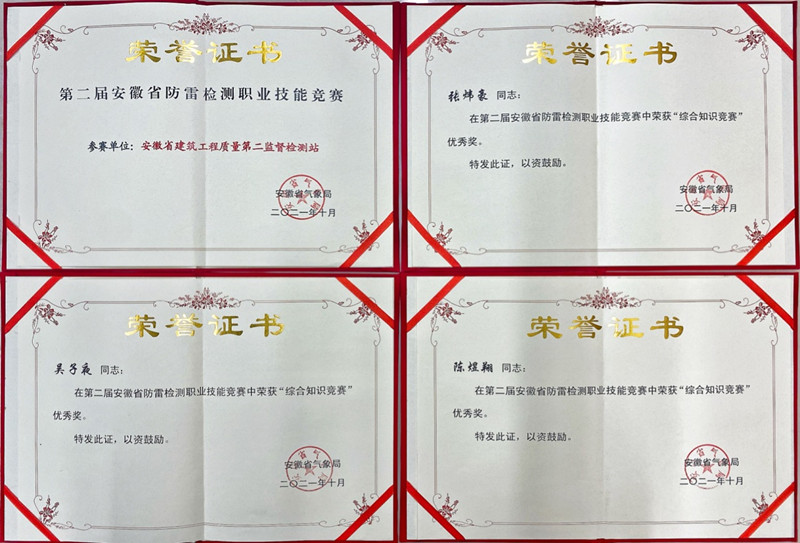 荣誉证书
第二届安徽省防雷检测职业技能竞赛
参赛单位：安徽省建筑工程质量第二监督检测站
安徽省气象局
二〇二一年十月
荣誉证书
张炜豪 同志：
在第二届安徽省防雷检测职业技能竞赛中荣获“综合知识竞赛”
优秀奖。
特发此证，以资鼓励。
安徽省气象局
二〇二一年十月
荣誉证书
吴子夜 同志：
在第二届安徽省防雷检测职业技能竞赛中荣获“综合知识竞赛”
优秀奖。
特发此证，以资鼓励。
安徽省气象局
二〇二一年十月
荣誉证书
陈煜翔 同志：
在第二届安徽省防雷检测职业技能竞赛中荣获“综合知识竞赛”
优秀奖。
特发此证，以资鼓励。
安徽省气象局
二〇二一年十月